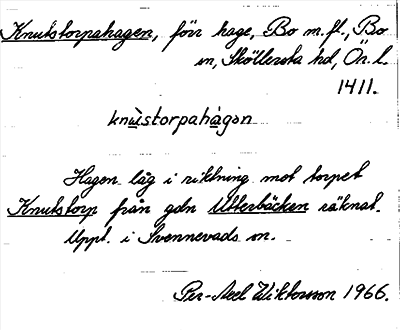 Knutstorpahagen, förr hage, Bo m.fl., Bo
sn, Sköllersta hd, Ör. l.
1411.
knùstorpahàgən
Hagen låg i riktning mot torpet
Knutstorp från gdn Utterbäcken räknat.
Uppt. i Svennevads sn.
Per-Axel Wiktorsson 1966.